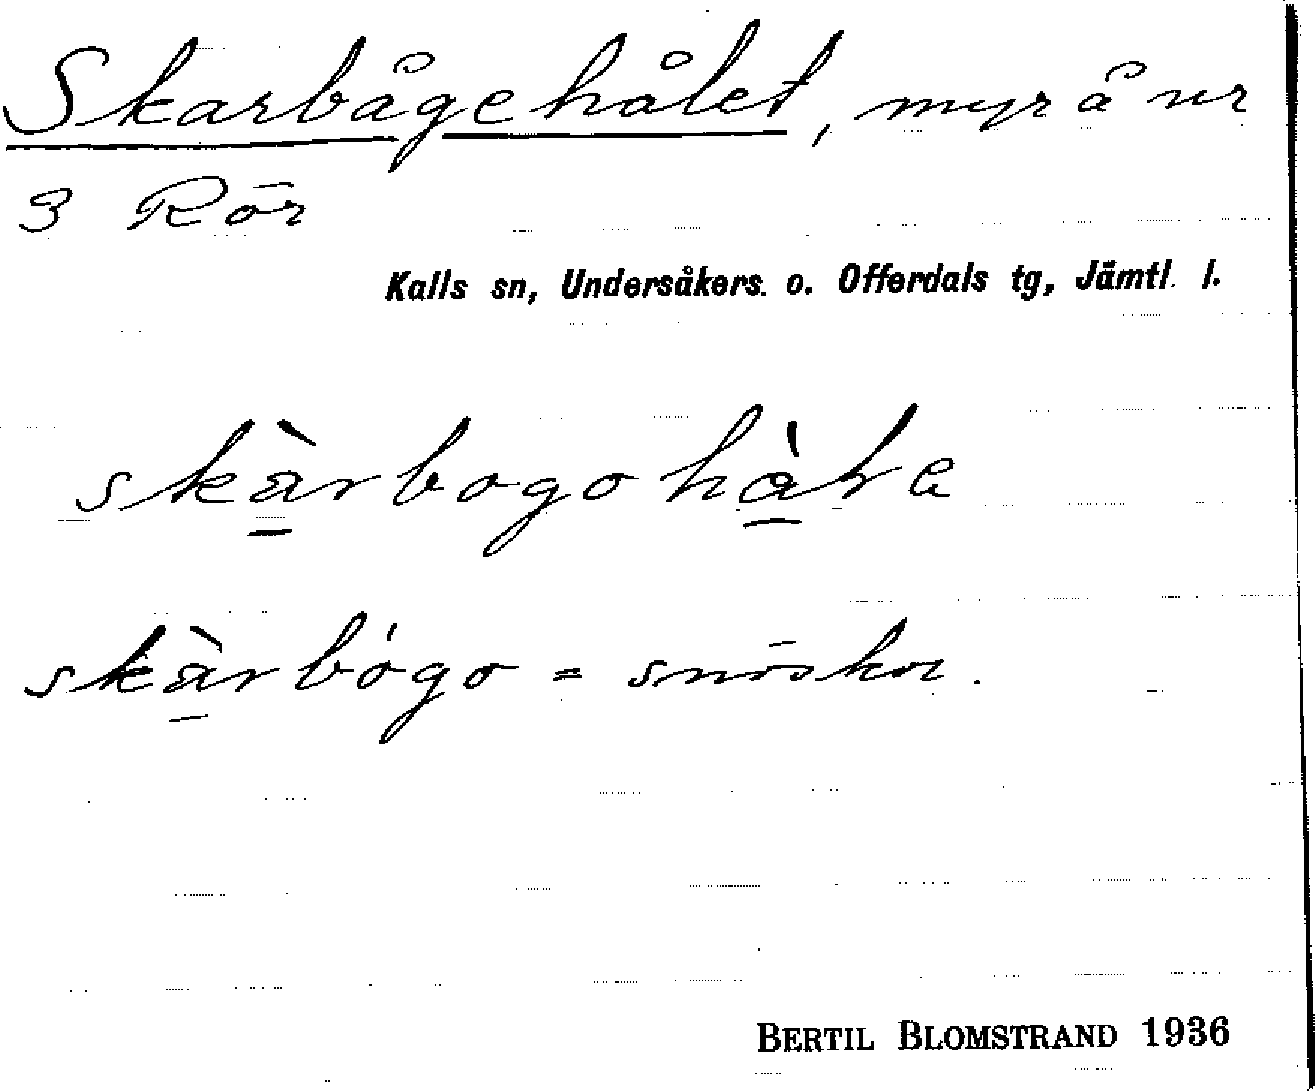 Skarbågehålet, myr å nr
3 Rör
Kalls sn, Undersåkers o. Offerdals tg, Jämtl. l.
skàrbogohàła
skàrbógo = snöskor.
BERTIL BLOMSTRAND 1936